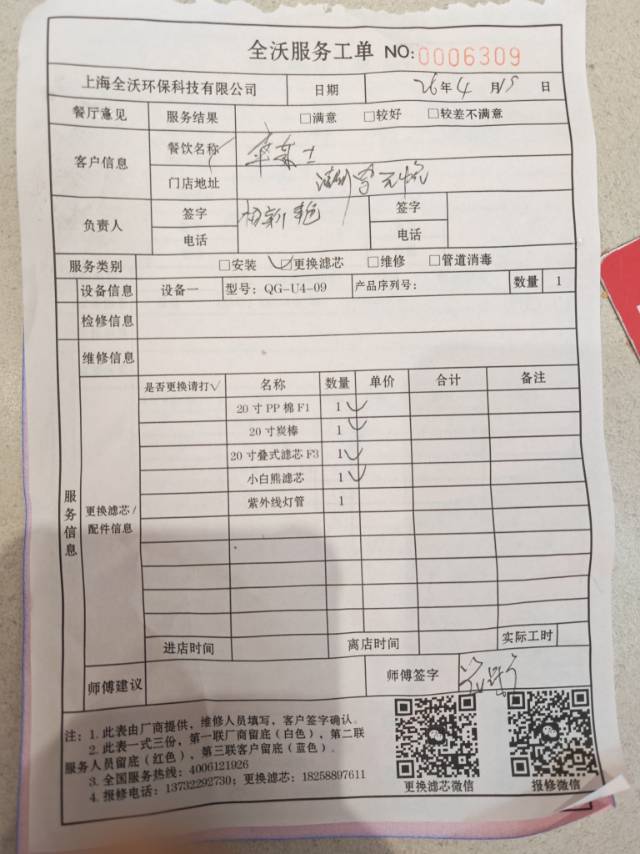 全沃服务工单 NO:0006309
上海全沃环保科技有限公司 日期 26年4月15日
餐厅意见 服务结果 □满意 □较好 □较差不满意
客户信息 餐饮名称
门店地址
负责人 签字 签字
电话 电话
服务类别 □安装 ☑更换滤芯 □维修 □管道消毒
设备信息 设备一 型号: QG-U4-09 产品序列号: 数量 1
检修信息
维修信息
服务信息
更换滤芯/配件信息
是否更换请打√ 名称 数量 单价 合计 备注
20寸PP棉F1 1 √
20寸炭棒 1 √
20寸叠式滤芯F3 1 √
小白熊滤芯 1 √
紫外线灯管 1
进店时间 离店时间 实际工时
师傅建议 师傅签字
注: 1. 此表由厂商提供, 维修人员填写, 客户签字确认。
2. 此表一式三份, 第一联厂商留底(白色), 第二联
服务人员留底(红色), 第三联客户留底(蓝色)。
3. 全国服务热线: 4006121926
4. 报修电话: 13732292730; 更换滤芯: 18258897611
更换滤芯微信 报修微信